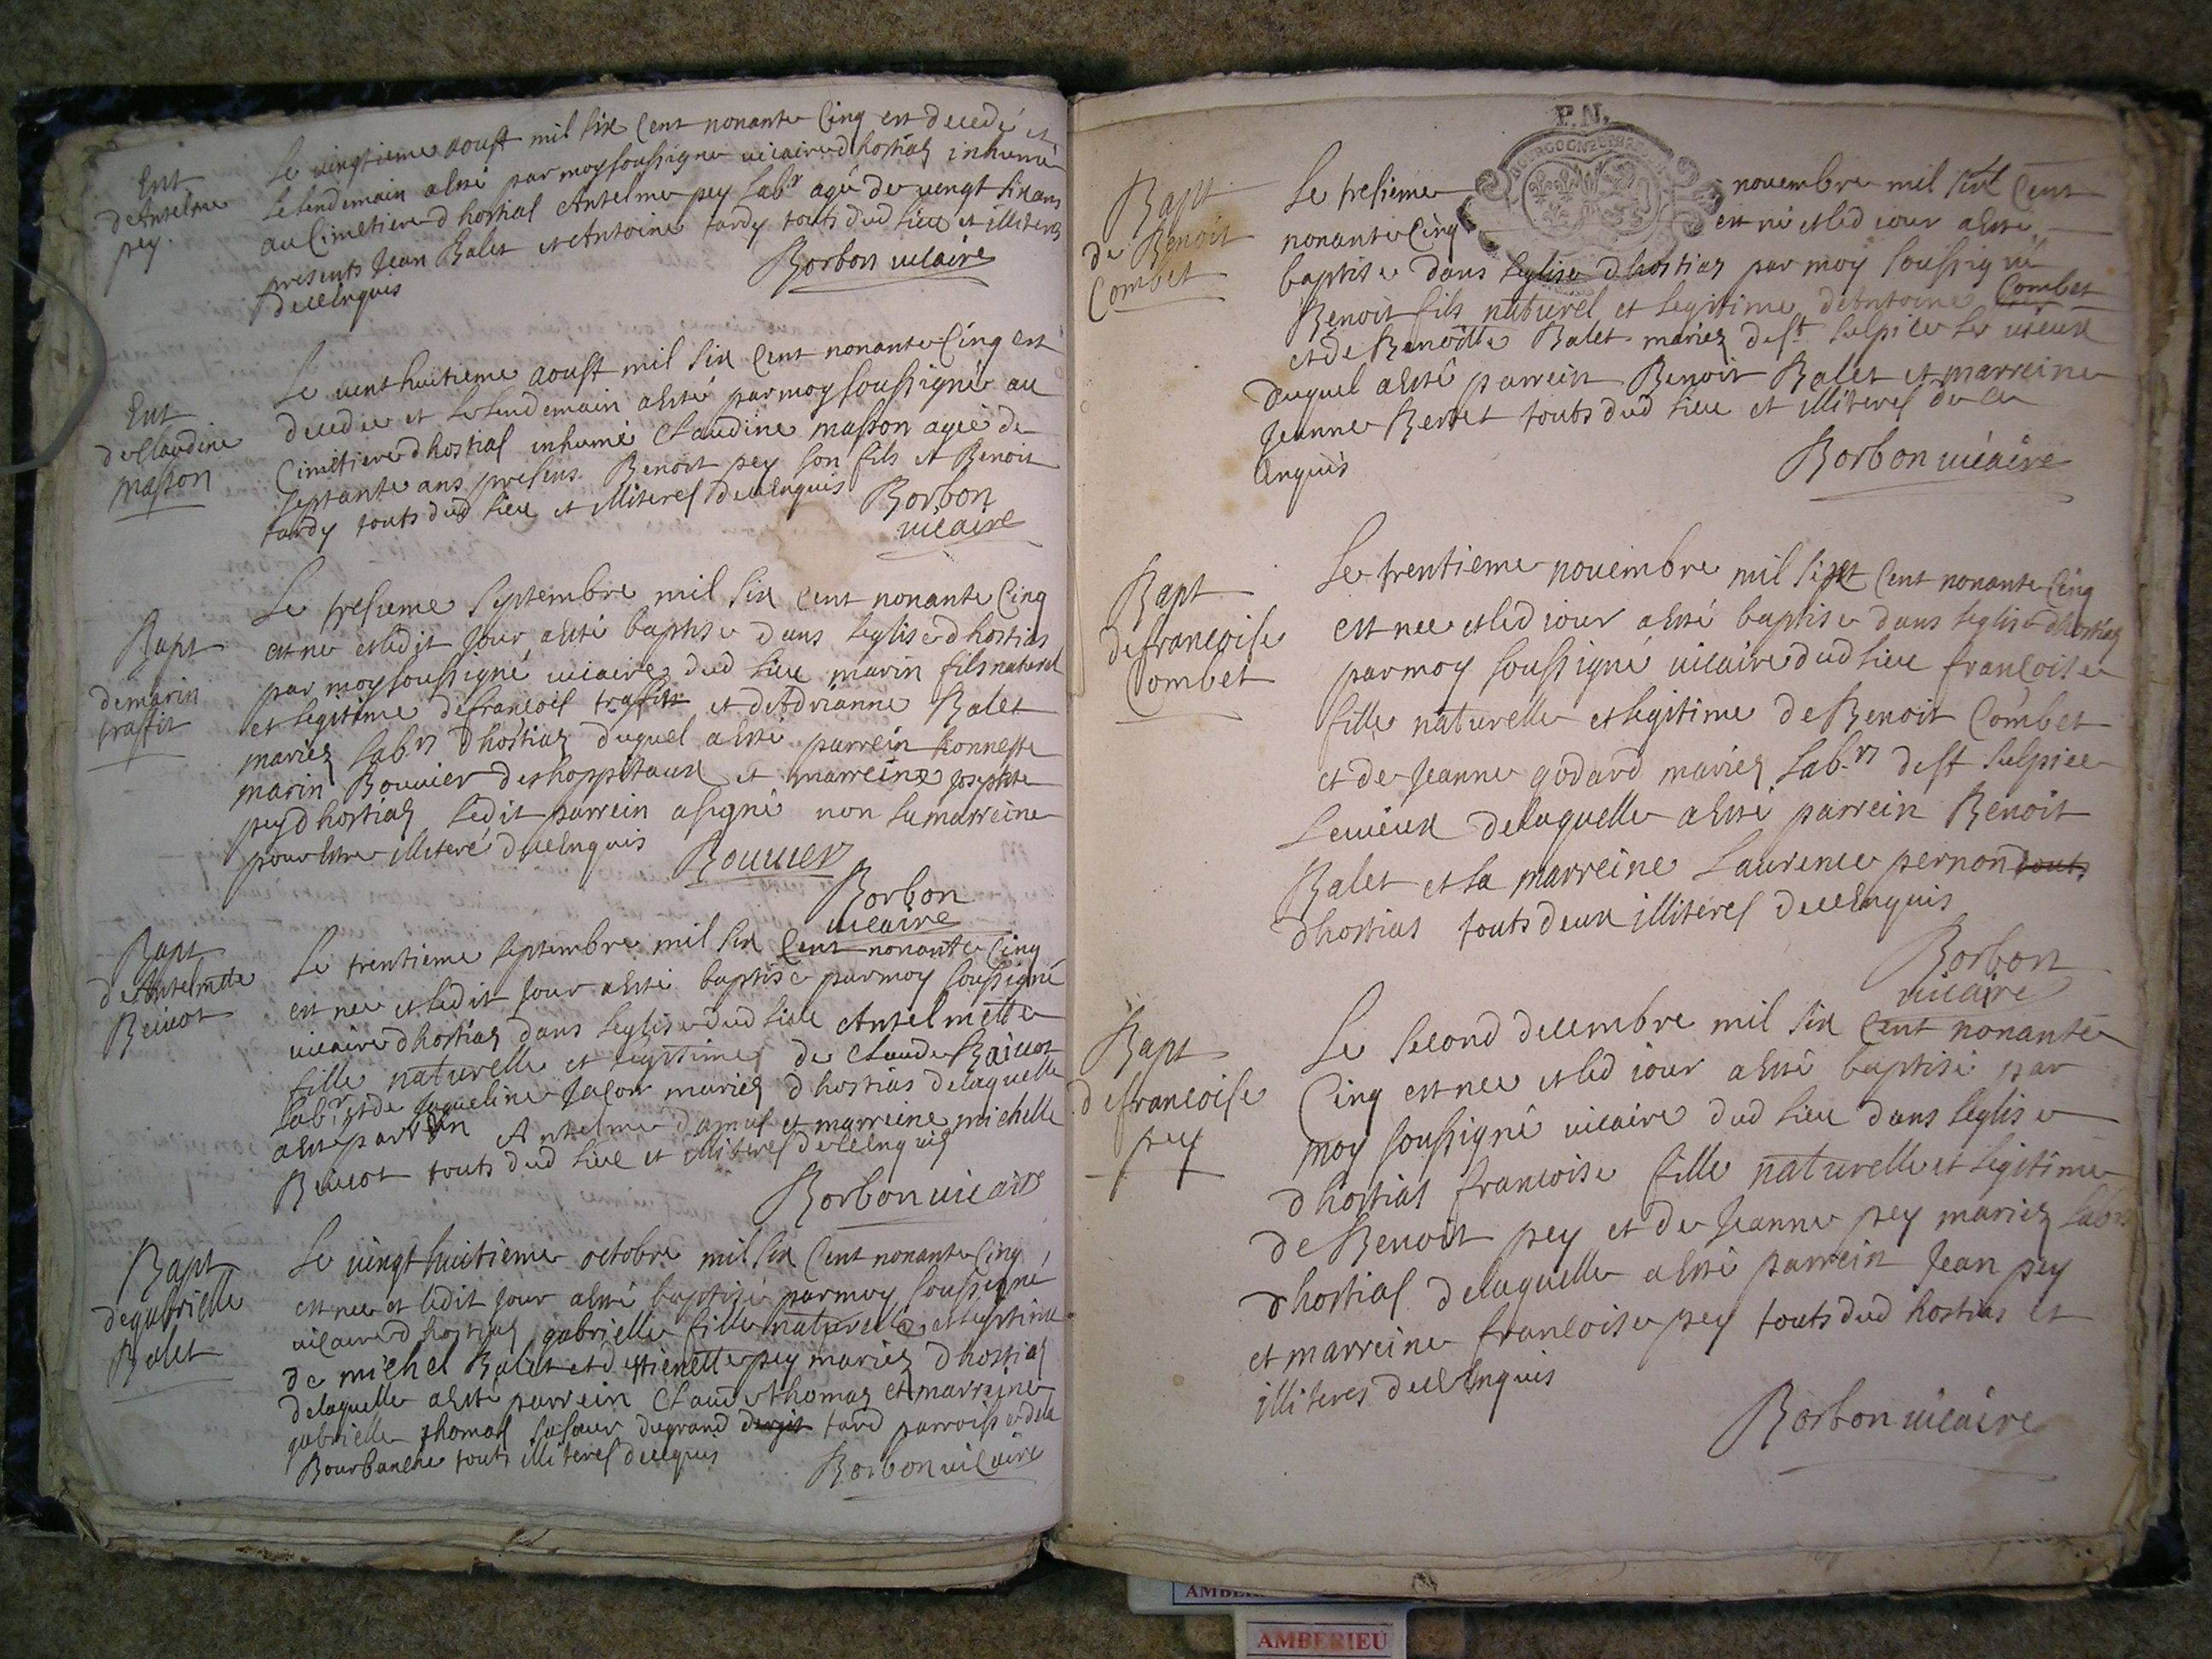 Ent
de Antelme
pey.
Le vingtieme aoust mil six cent nonante cinq est decedé et
le lendemain a esté par moy soussigné vicaire d hostiaz inhumé
au cimetiere d hostias Antelme pey labr agé de vengt six ans
presents Jean Balet et Antoine tardy touts dud lieu et illiteres
de ce enquis
Borbon vicaire
Ent
de Claudine
masson
Le vent huitieme aoust mil six cent nonante cinq est
decedee et le lendemain a esté par moy soussigné au
Cimetiere d hostias inhumé Claudine masson ageé de
septante ans presens Benoit pey son fils et Benoit
tardy touts dud lieu et illiteres de ce enquis
Borbon
vicaire
Bapt
de marin
traffit
Le tresieme septembre mil six cent nonante cinq
est ne et ledit jour a esté baptise dans leglise d hostias
par moy soussigné vicaire dud lieu marin fils naturel
et legitime de francois traffit et de Adrianne Balet
mariez labrs d hostiaz duquel a esté parrein honneste
marin Bouvier des hoppitaux et marreine josephte
pey d hostiaz ledit parrein a signé non la marreine
pour estre illiteré de ce enquis
Bouuier
Borbon
vicaire
Bapt
de Antelmette
Reveot
Le trentieme septembre mil six cent nonante cinq
est nee et ledit jour a esté baptisé par moy soussigné
vicaire d hostiaz dans leglise dud lieu Antelmette
fille naturelle et legitime de Claude
labr et de Jaqueline Jacour mariez d hostias delaquelle
a esté parrein Antelme et marreine michelle
touts dud lieu et illiteres de ce enquis
Borbon vicaire
Bapt
de gabrielle
Balet
Le vingt huitieme octobre mil six cent nonante cinq
est nee et ledit jour a esté baptizé par moy soussigné
vicaire d hostiaz gabrielle fille naturelle et legitime
de michel Balet et d estienette pey mariez d hostiaz
delaquelle a esté parrein Claude thomaz et marreine
gabrielle thomas sa soeur du grand tard parroisse de la
Bourbanche touts illiteres de ce enquis
Borbon vicaire
P.N.
BOURGOGNE
Bapt
de Benoit
Combet
Le tresieme novembre mil six cent
nonante cinq est né et led iour a esté
baptise dans leglise d hostiaz par moy soussigné
Benoit fils naturel et legitime de Antoine Combet
et de Benoitte Balet mariez de st sulpice le vieux
duquel a esté parrein Benoit Balet et marreine
Jeanne Berret touts dud lieu et illiteres de ce
enquis
Borbon vicaire
Bapt
de francoise
Combet
Le trentieme novembre mil six cent nonante cinq
est nee et led iour a esté baptise dans leglise d hostiaz
par moy soussigné vicaire dud lieu francoise
fille naturelle et legitime de Benoit Combet
et de Jeanne godard mariez labrs de st sulpice
le vieux delaquelle a esté parrein Benoit
Balet et la marreine Laurence pernon touts
d hostias touts deux illiteres de ce enquis
Borbon
vicaire
Bapt
de francoise
pey
Le second decembre mil six cent nonante
Cinq est nee et led iour a esté baptisé par
moy soussigné vicaire dud lieu dans leglise
d hostias francoise fille naturelle et legitime
de Benoit pey et de Jeanne pey mariez labrs
d hostias delaquelle a esté parrein Jean pey
et marreine francoise pey touts dud hostias et
illiteres de ce enquis
Borbon vicaire
AMBERIEU